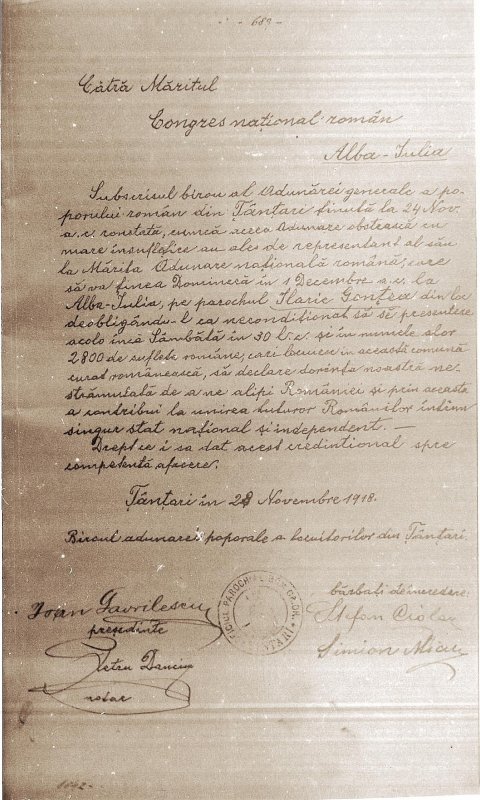 - 680 -
Cătră Măritul
Congres național român
Alba-Iulia
Subscrisul birou al Adunărei generale a po-
porului român din Țânțari ținută la 24 Nov.
a.c. constată, cumcă acea Adunare obștească cu
mare însuflețire au ales de reprezentant al său
la Mărita Adunare națională română, care
să va ținea Dominecă în 1 Decembre a.c. la
Alba-Iulia, pe parochul Ilarie Gonțea din loc
deobligându-l ca necondiționat să se presenteze
acolo încă Sâmbătă în 30 l.c. și în numele alor
2800 de suflete române, cari locuesc în această comună
curat românească, să declare dorența noastră ne-
strămutată de a ne alipi României și prin aceasta
a contribui la unirea tuturor Românilor într'un
singur stat național și independent. —
Drept ce i sa dat acest credințional spre
competentă afacere.
Țânțari în 28 Novembre 1918.
Biroul adunarei poporale a locuitorilor din Țânțari.
bărbați de încredere:
Ioan Gavrilescu
presedinte
Ștefan Ciolac
Petru Dancu
Simion Micu
notar